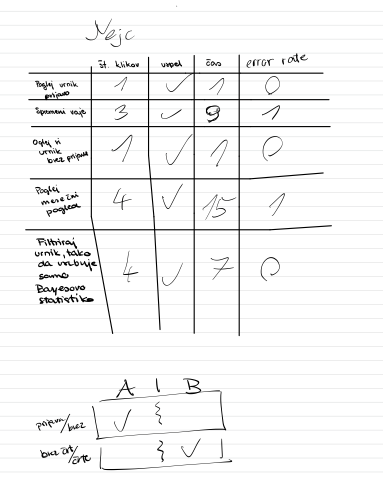 Nejc
št. klikov uspel čas error rate
Poglej urnik
prijava 1 ✓ 1 0
Spremeni vaje 3 ✓ 9 1
Oglej si
urnik
brez prijave 1 ✓ 1 0
Poglej
mesečni
pogled 4 ✓ 15 1
Filtriraj
urnik, tako
da vsebuje
samo
Bayesovo
statistiko 4 ✓ 7 0
A | B
prijava/brez ✓
brez črt/
črte ✓